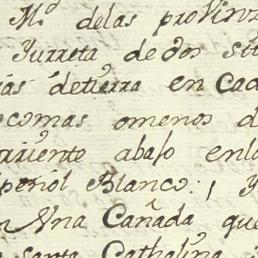 M.ᵈ delas provinz
Yurreta de dos sit
ias detierra en Cad
ocomas omenos d
rriente abajo enla
periol Blanco; Y
n Una Cañada que
santa Cathalina